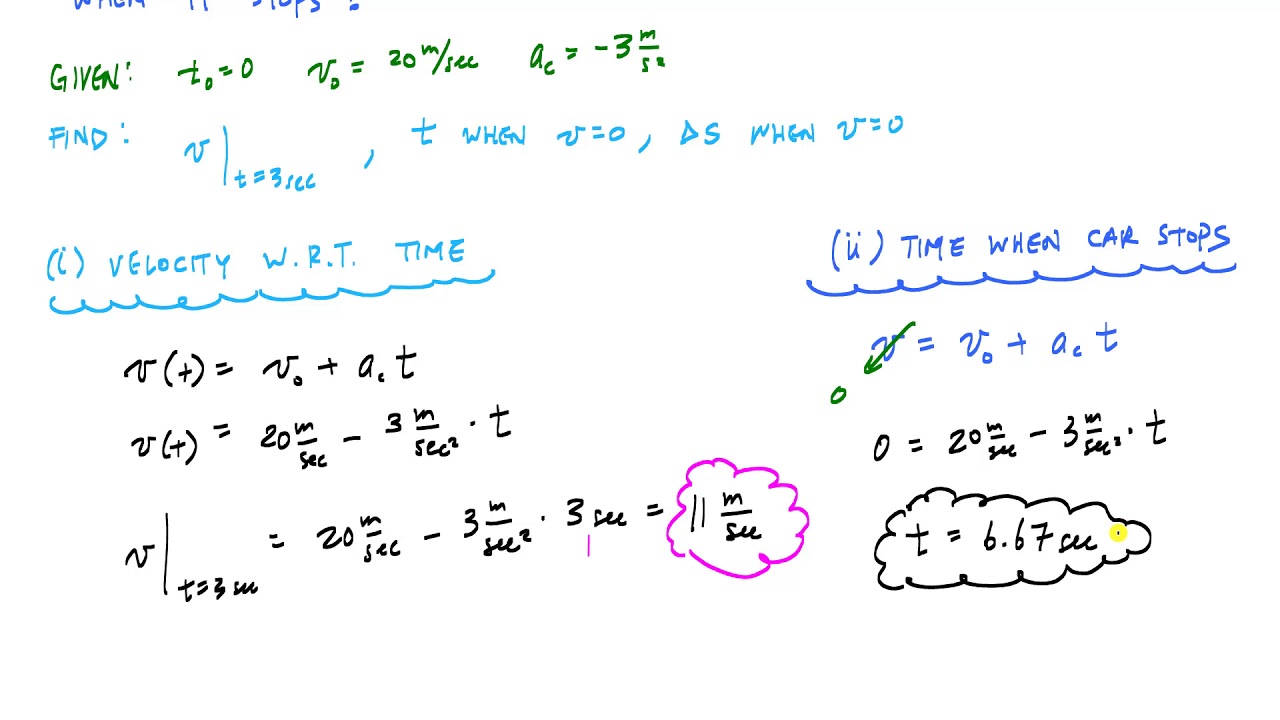 WHEN IT STOPS?
GIVEN: t₀ = 0 v₀ = 20 m/sec a_c = -3 m/s²
FIND: v|t=3sec , t WHEN v=0, ΔS WHEN v=0
(i) VELOCITY W.R.T. TIME
v(t) = v₀ + a_c t
v(t) = 20 m/sec - 3 m/sec² · t
v|t=3 sec = 20 m/sec - 3 m/sec² · 3 sec = 11 m/sec
(ii) TIME WHEN CAR STOPS
v = v₀ + a_c t
0
0 = 20 m/sec - 3 m/sec² · t
t = 6.67 sec